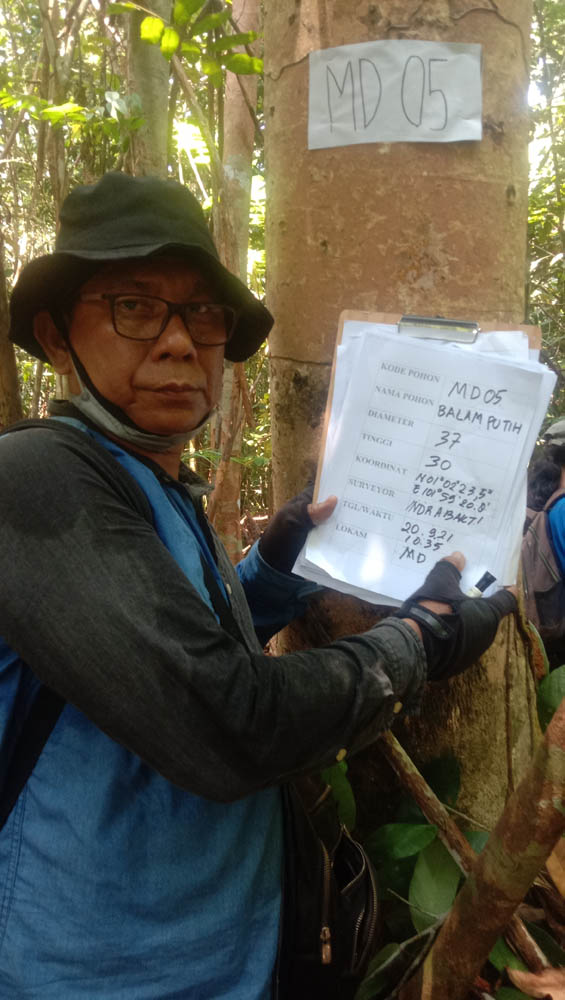 MD 05
KODE POHON MD05
NAMA POHON BALAM PUTIH
DIAMETER 37
TINGGI 30
KOORDINAT N 01° 02' 23,5" E 101° 59' 20.8'
SURVEYOR INDRA BAKTI
TGL/WAKTU 20.9.21 10:35
LOKASI MD